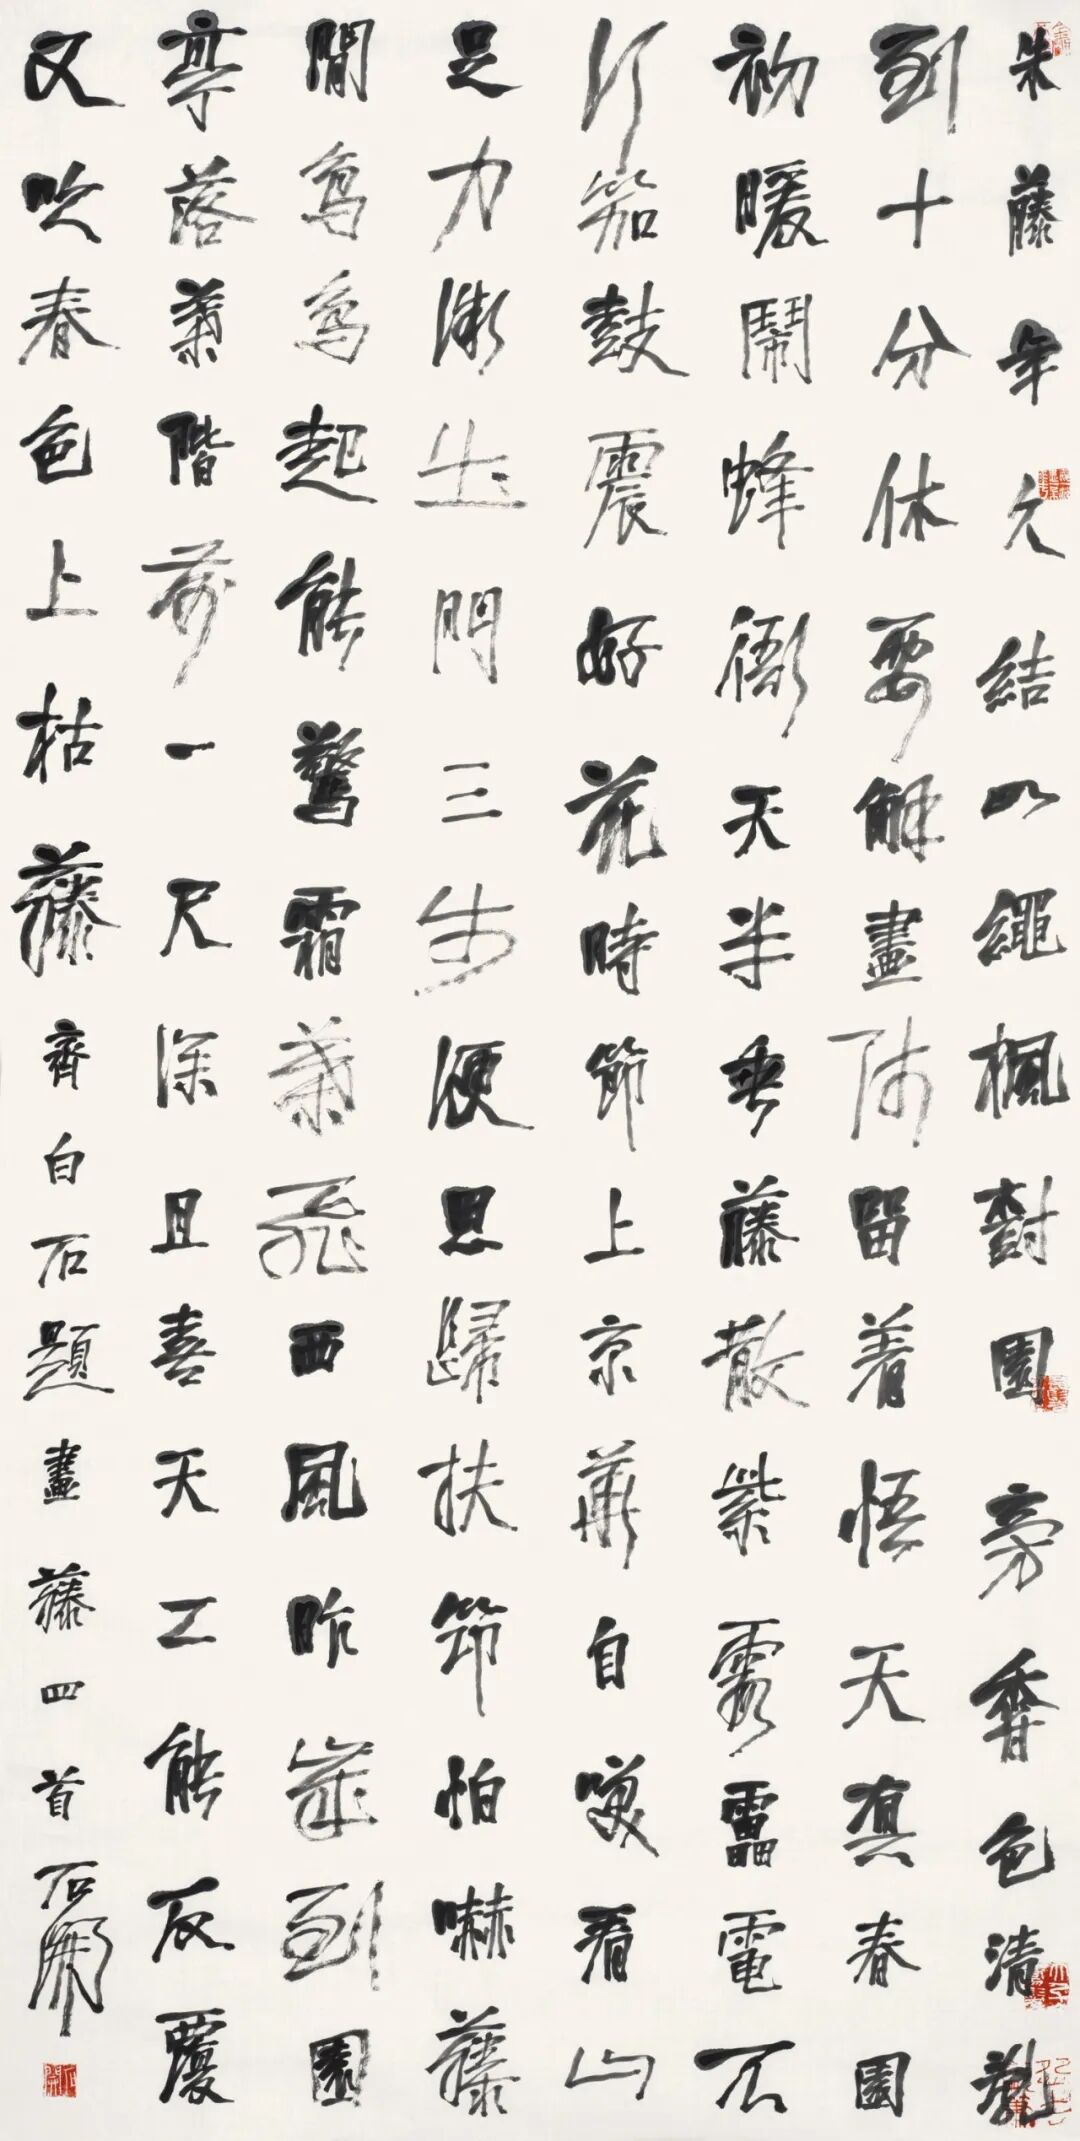 朱藤年久結如繩楓樹園旁香色清亂
到十分休要解畫師留着悟天真春園
初暖鬧蜂衙天半垂藤散紫霞靁電不
行笳鼓震好花時節上京華自嘆看山
足力微出門三步便思歸扶筇怕嚇藤
間鳥鳥起能驚霜葉飛西風昨歲到園
亭落葉階前一尺深且喜天工能反覆
又吹春色上枯藤齊白石題畫藤四首石開